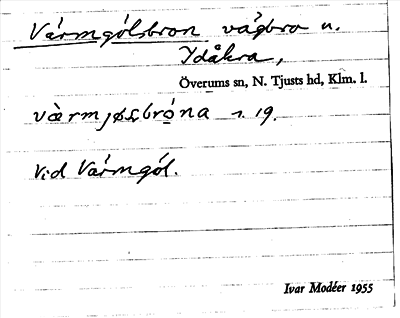 Värmgölsbron vägbro u.
Ydåkra,
Överums sn, N. Tjusts hd, Klm. l.
r. 19.
Vid Värmgöl.
Ivar Modéer 1955